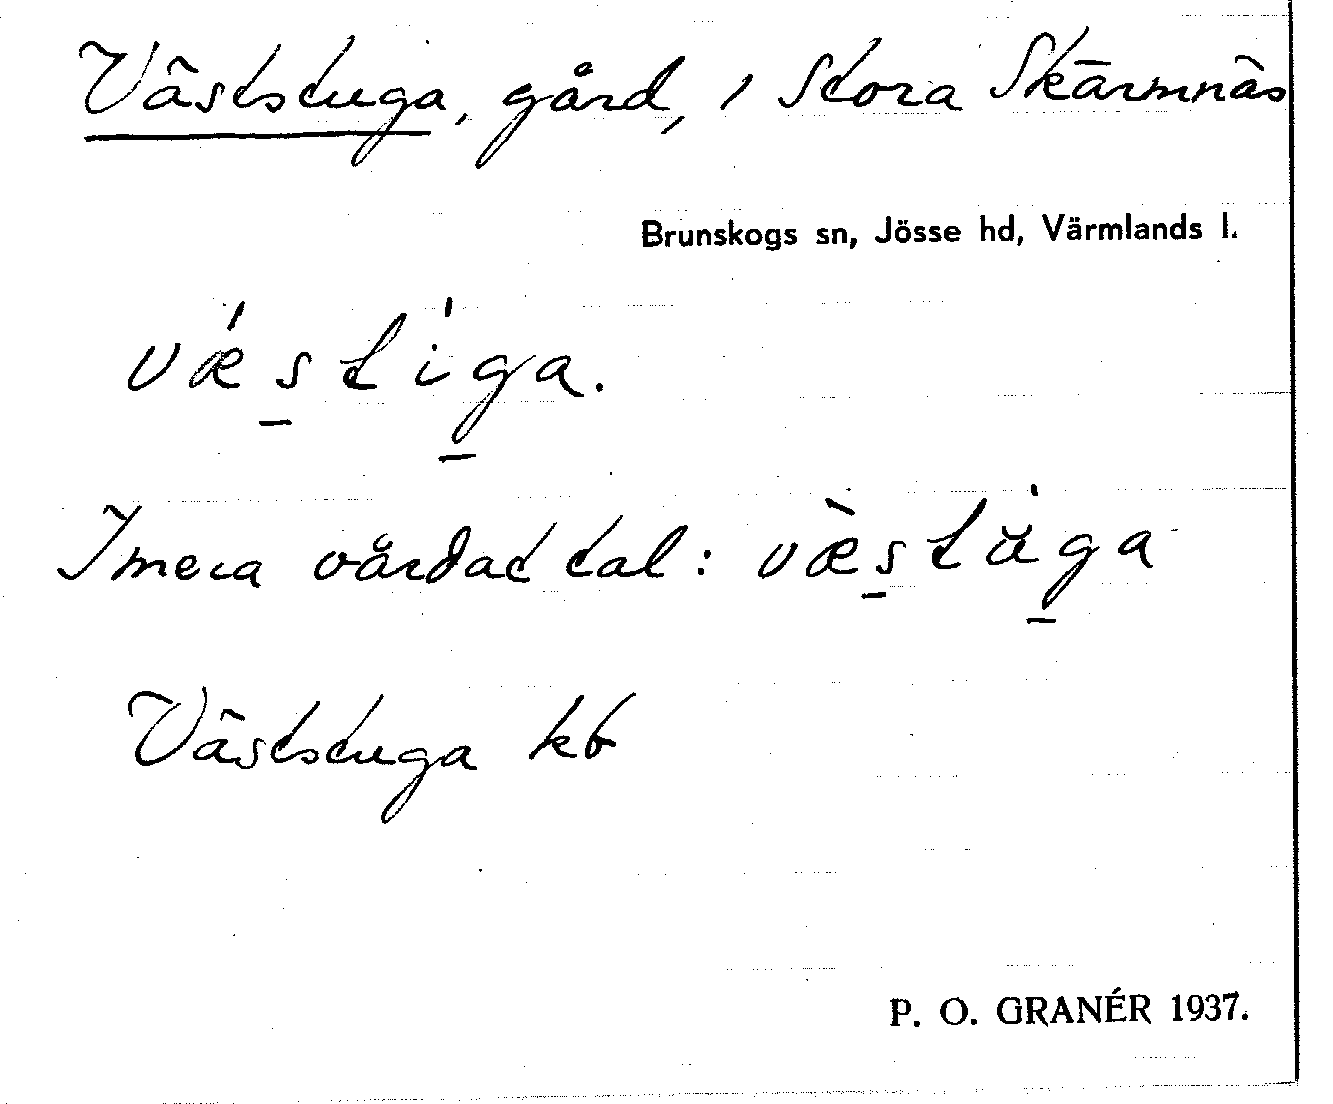 Väststuga, gård, i Stora Skärmnäs
Brunskogs sn, Jösse hd, Värmlands l.
vǽstíga.
I mera vårdat tal: væ̀stu̇ga
Väststuga kb
P. O. GRANÉR 1937.